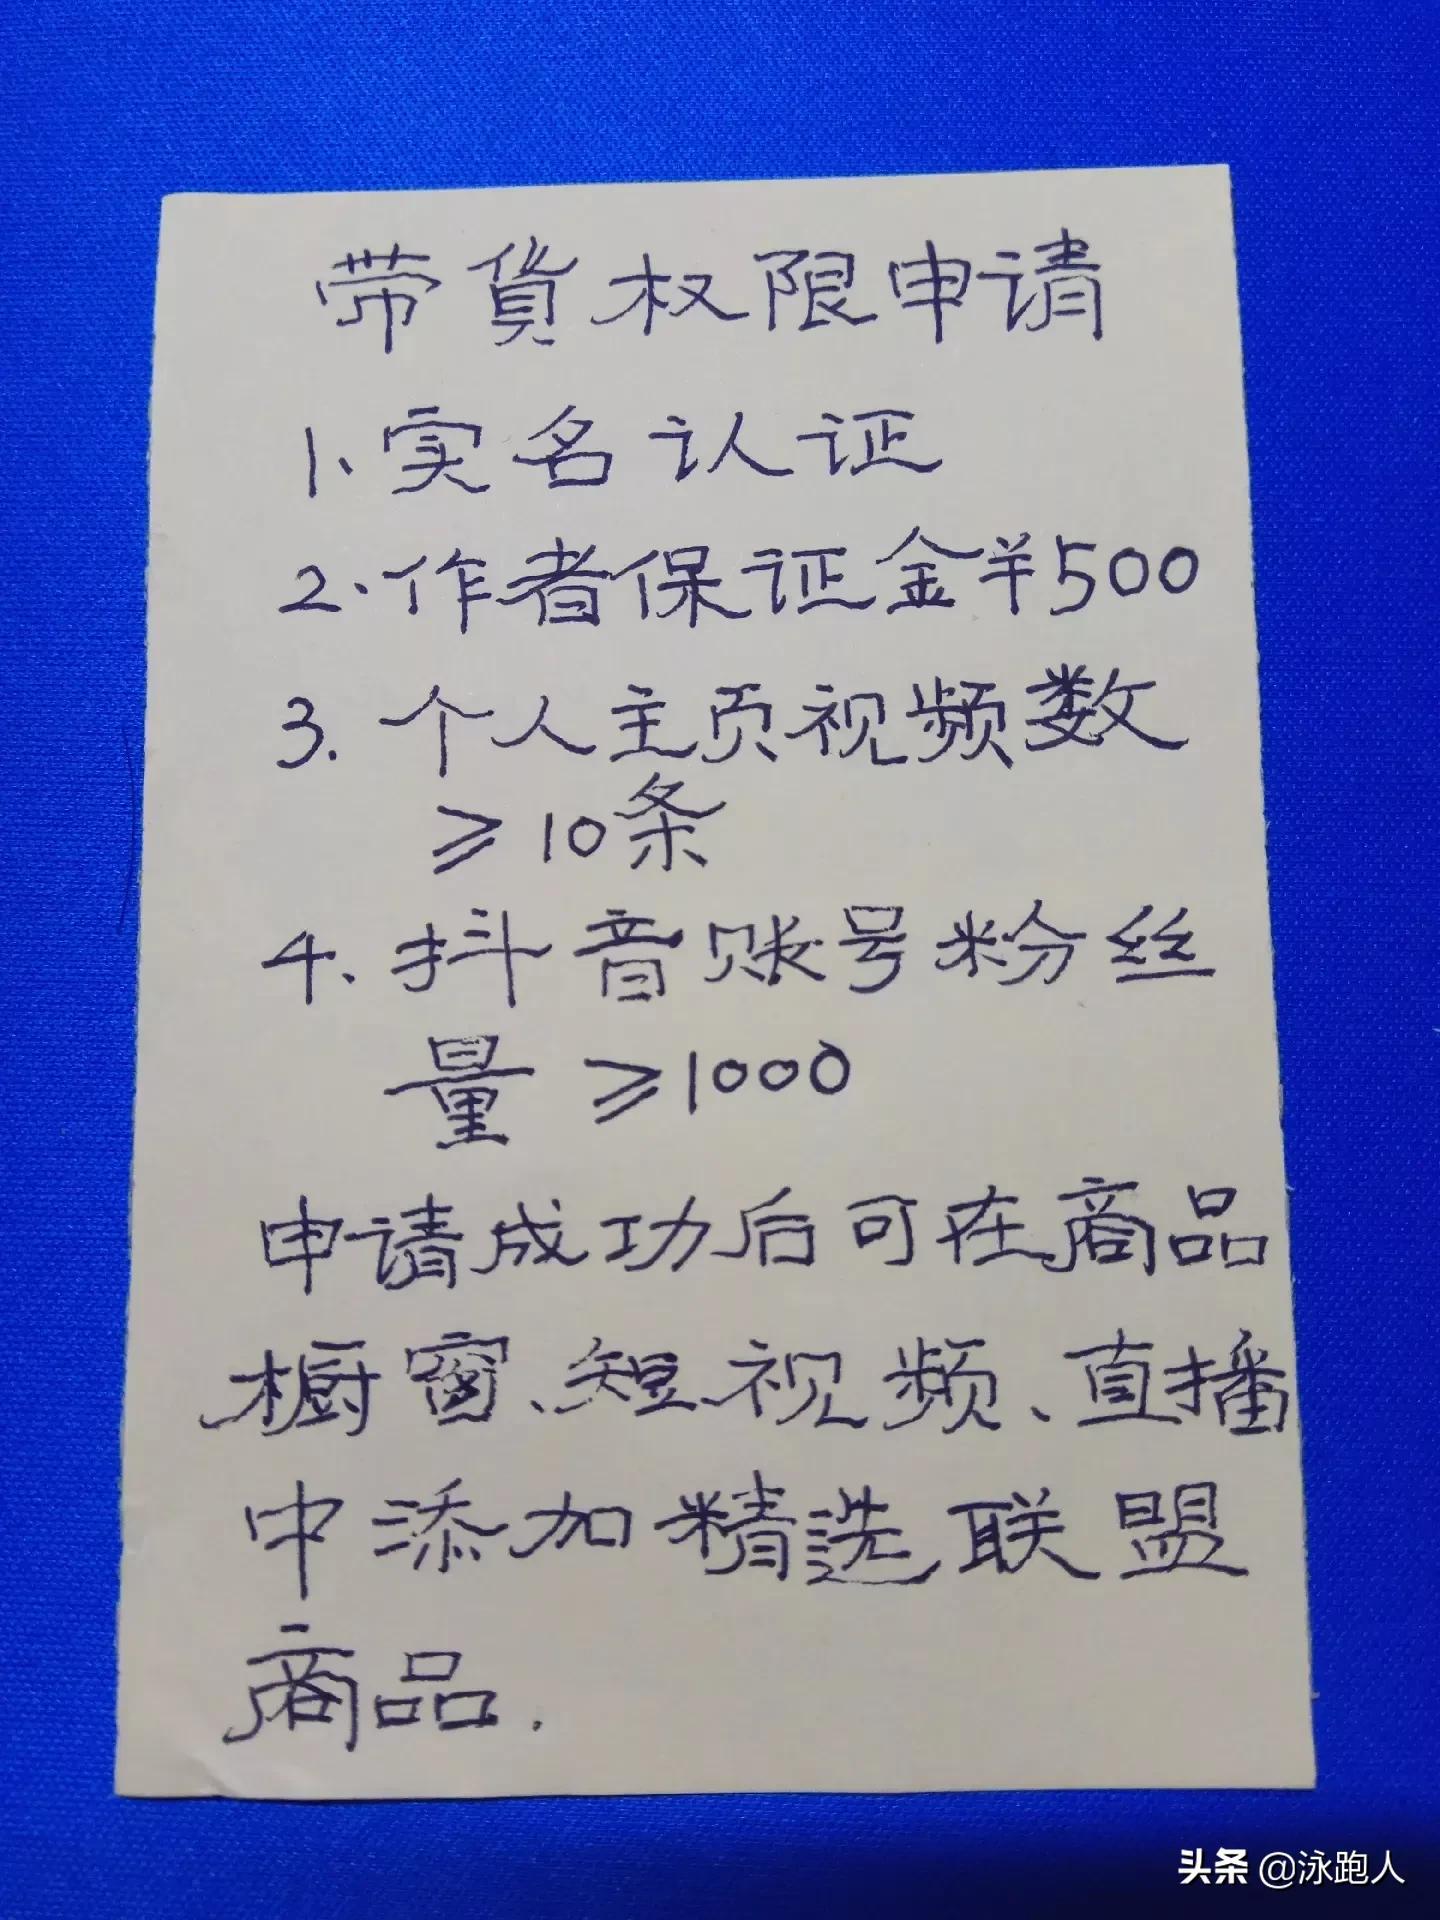 带货权限申请
1、实名认证
2.作者保证金¥500
3.个人主页视频数
≥10条
4、抖音账号粉丝
量≥1000
申请成功后可在商品
橱窗、短视频、直播
中添加精选联盟
商品.
头条 @泳跑人